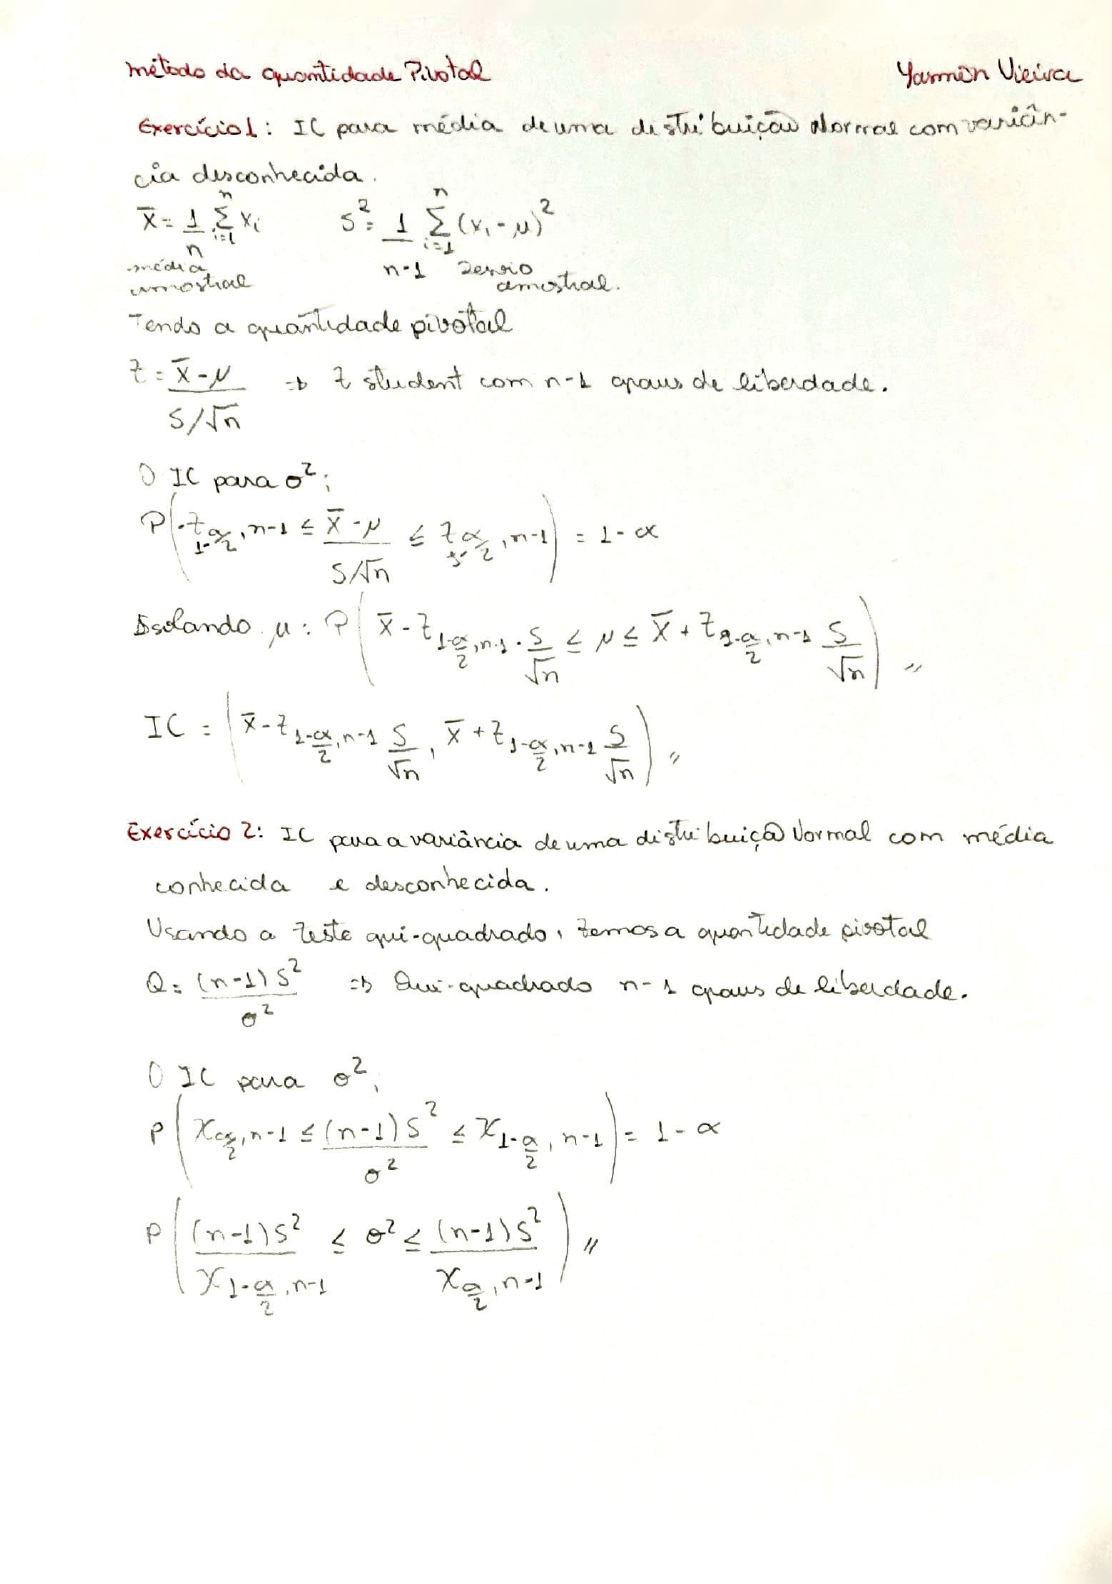 método da quantidade Pivotal
Yasmin Vieira
Exercício 1: IC para média de uma distribuição Normal com variân-
cia desconhecida.
x̄ = 1/n Σ_{i=1}^{n} xi    S² = 1/(n-1) Σ_{i=1}^{n} (xi - μ)²
média
amostral
amostral.
Tendo a quantidade pivotal
t = (x̄ - μ)/(S/√n) => t student com n-1 graus de liberdade.
O IC para σ²;
P(-t_{1-α/2, n-1} ≤ (x̄ - μ)/(S/√n) ≤ t_{1-α/2, n-1}) = 1 - α
Isolando μ: P(x̄ - t_{1-α/2, n-1} · S/√n ≤ μ ≤ x̄ + t_{1-α/2, n-1} S/√n) //
IC = (x̄ - t_{1-α/2, n-1} S/√n, x̄ + t_{1-α/2, n-1} S/√n) //
Exercício 2: IC para a variância de uma distribuição Normal com média
conhecida e desconhecida.
Usando a teste qui-quadrado, temos a quantidade pivotal
Q = (n-1)S²/σ² => Qui-quadrado n-1 graus de liberdade.
O IC para σ²;
P(χ_{α/2, n-1} ≤ (n-1)S²/σ² ≤ χ_{1-α/2, n-1}) = 1 - α
P((n-1)S²/χ_{1-α/2, n-1} ≤ σ² ≤ (n-1)S²/χ_{α/2, n-1}) //